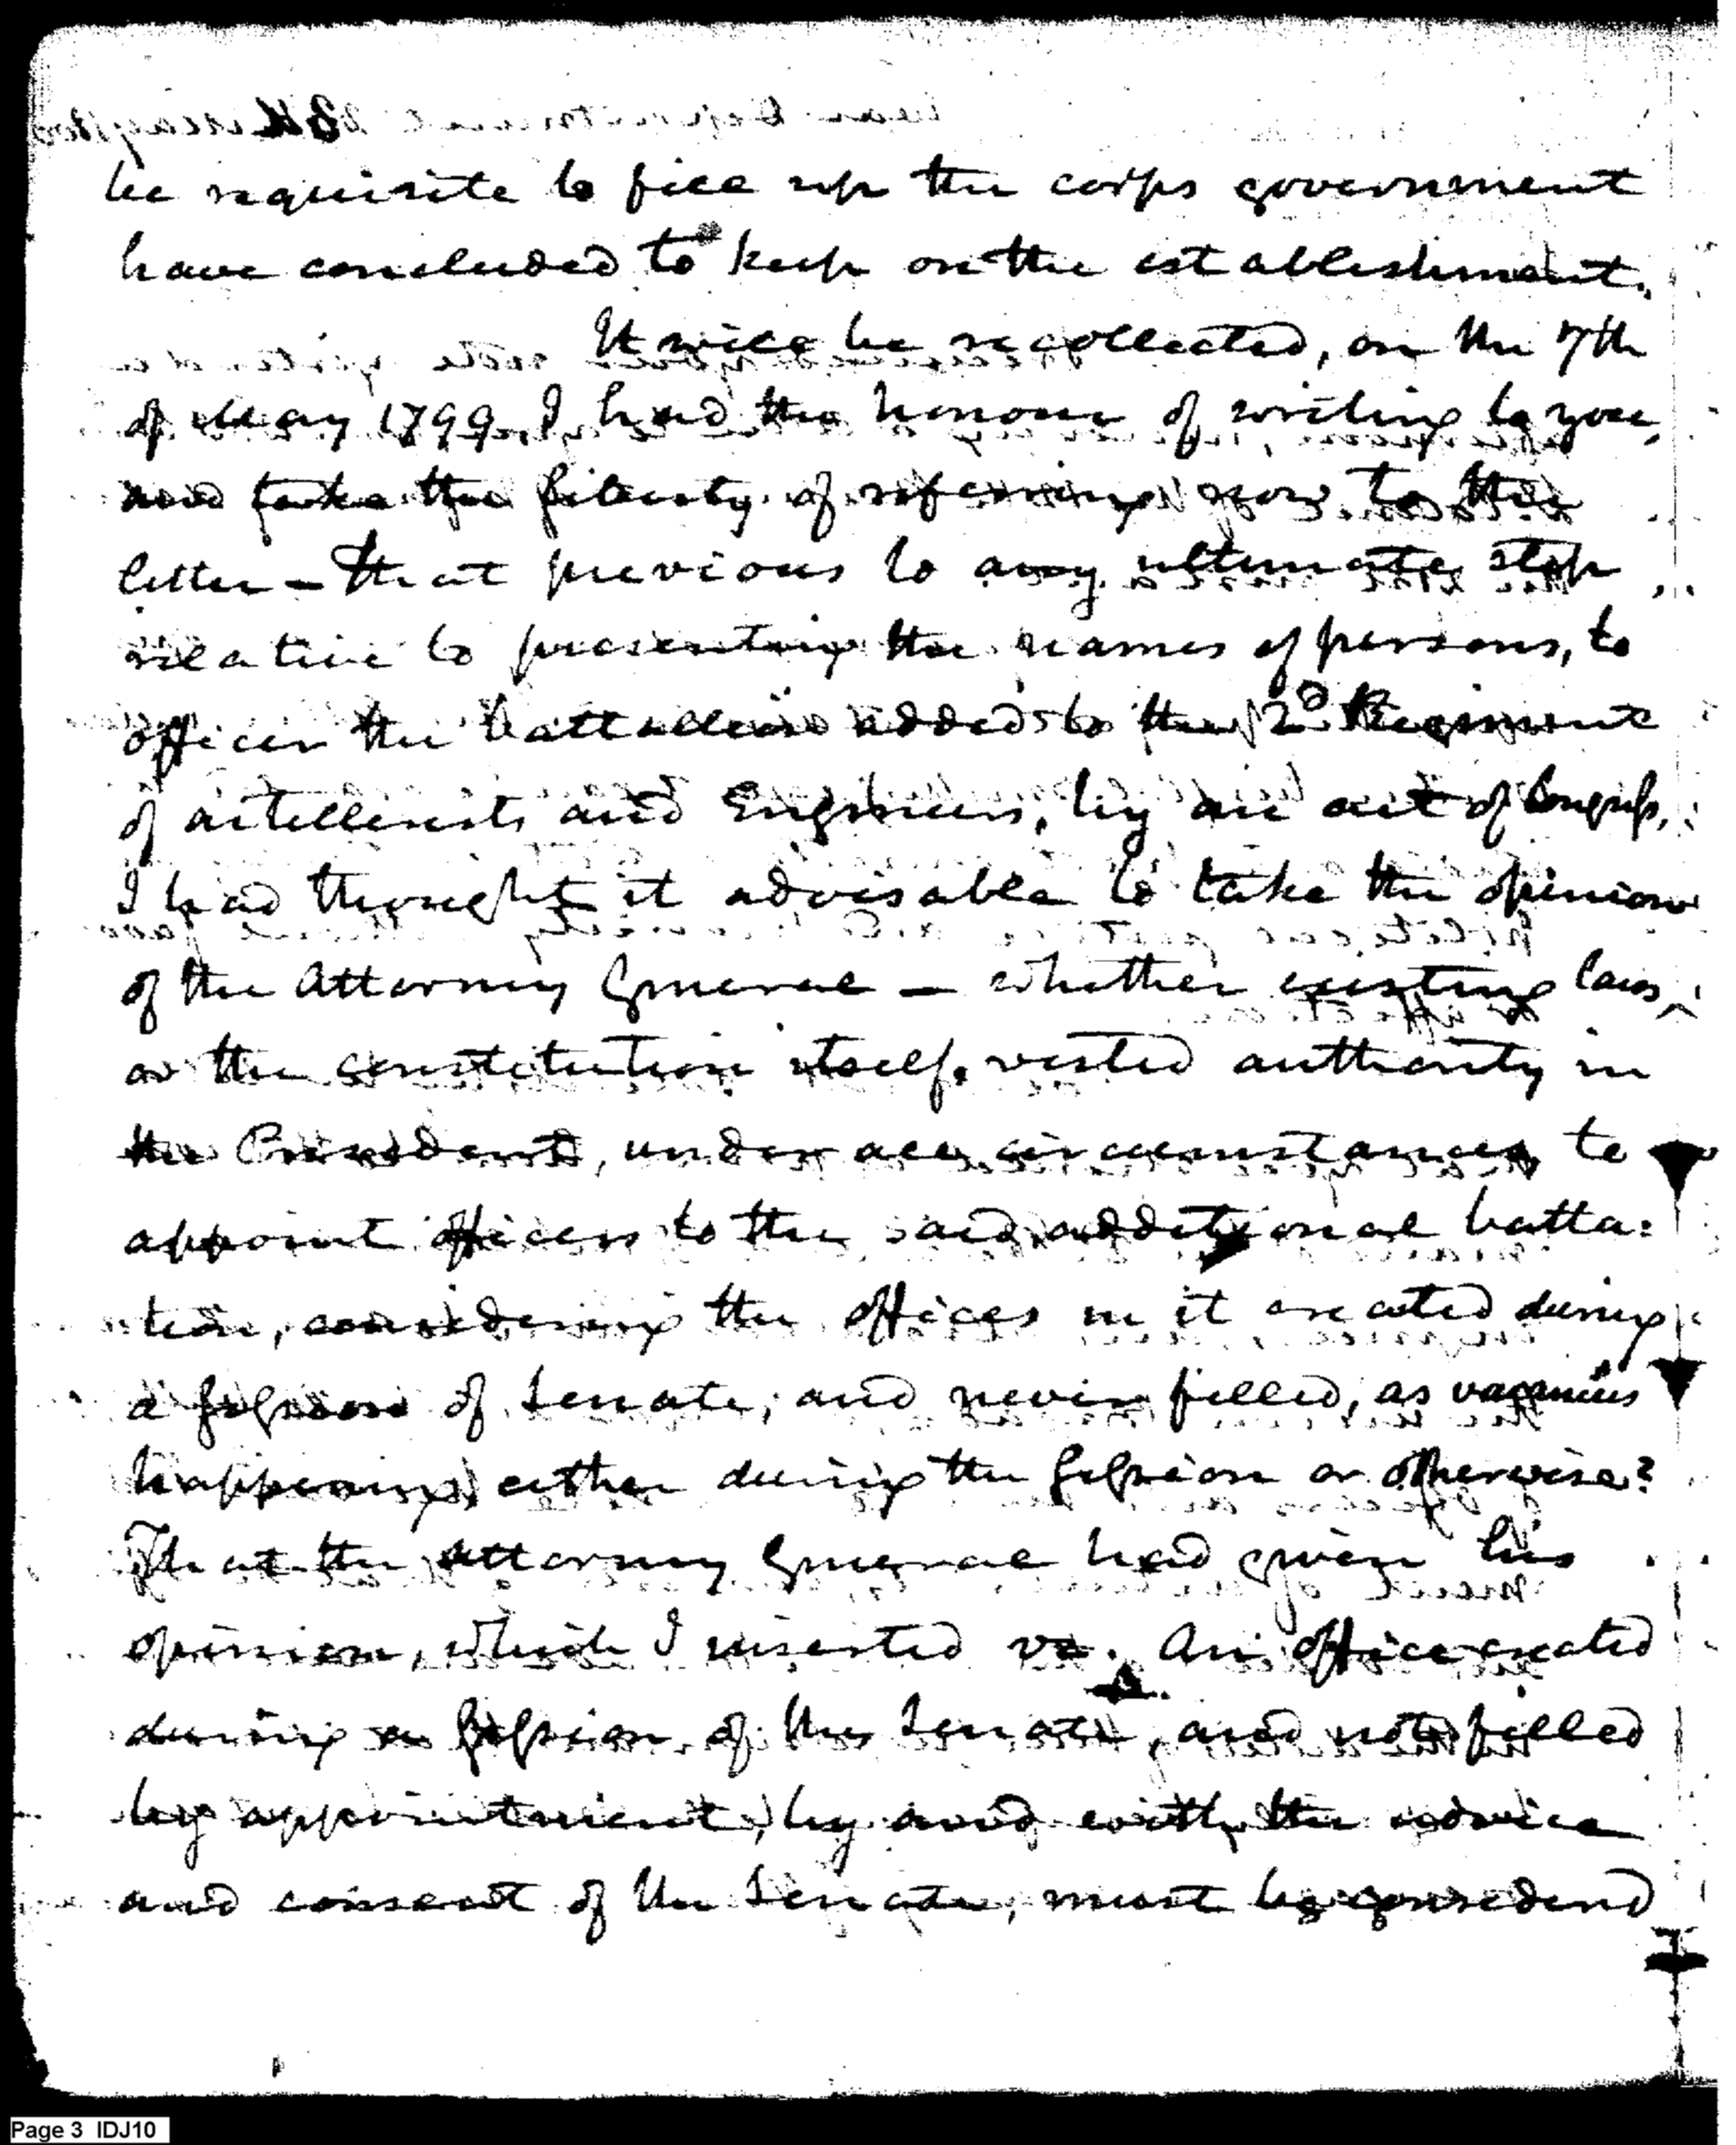 be requisite to fill up the corps government
have concluded to keep on the establishment.
It will be recollected, on the 7th
of May 1799, I had the honour of writing to you,
and take the liberty of referring now to the
letter — That previous to any ultimate step
relative to presenting the names of persons, to
officer the battallion added to the 2d Regiment
of artillerists and Engineers, by an act of Congress,
I had thought it advisable to take the opinion
of the Attorney General — whether existing laws,
or the constitution itself, vested authority in
the President, under all circumstances, to
appoint officers to the said additional batta:
lion, considering the offices in it created during
a session of Senate, and never filled, as vacancies
happening, either during the session or otherwise?
That the Attorney General had given his
opinion, which I inserted vz. An office created
during a session of the Senate, and not filled
by appointment, by and with the advice
and consent of the Senate, must be considered
Page 3 IDJ10